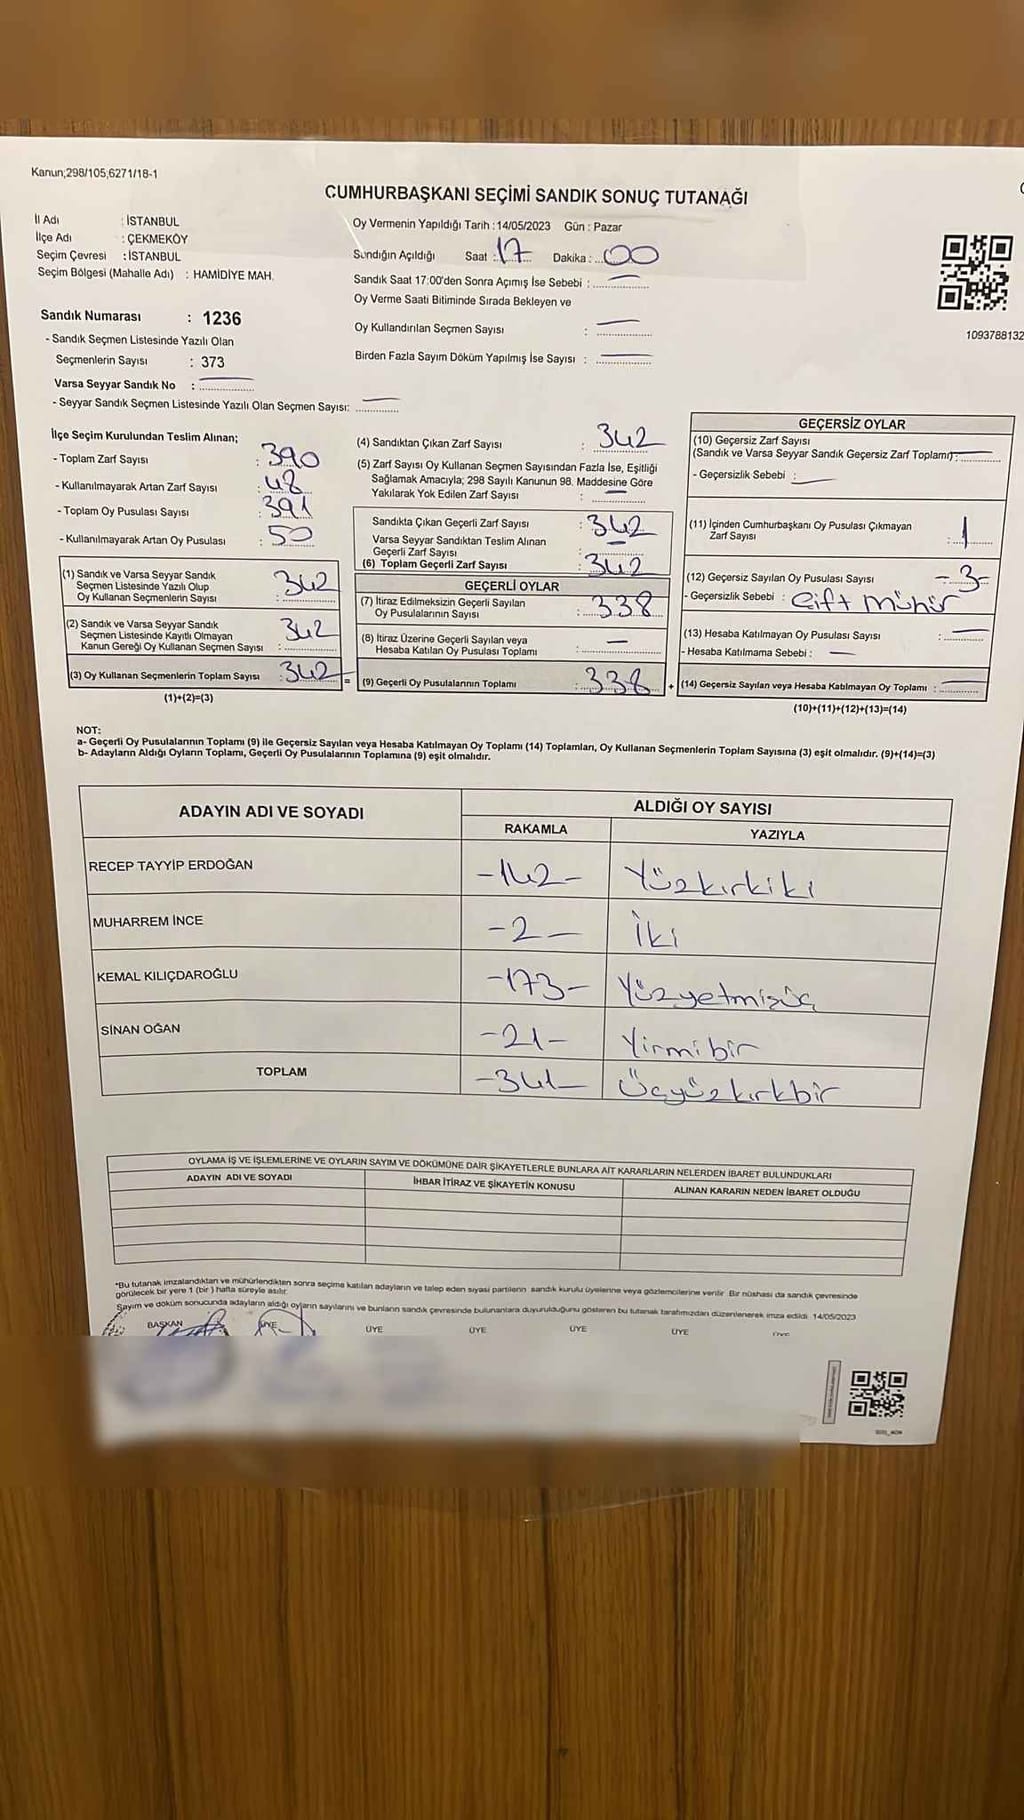 Kanun;298/105,6271/18-1
CUMHURBAŞKANI SEÇİMİ SANDIK SONUÇ TUTANAĞI
İl Adı : İSTANBUL
İlçe Adı : ÇEKMEKÖY
Seçim Çevresi : İSTANBUL
Seçim Bölgesi (Mahalle Adı) : HAMİDİYE MAH.
Oy Vermenin Yapıldığı Tarih :14/05/2023 Gün : Pazar
Sandığın Açıldığı Saat : 17 Dakika : 00
Sandık Saat 17:00'den Sonra Açımış İse Sebebi :
Oy Verme Saati Bitiminde Sırada Bekleyen ve
Oy Kullandırılan Seçmen Sayısı :
Birden Fazla Sayım Döküm Yapılmış İse Sayısı :
1093788132
Sandık Numarası : 1236
- Sandık Seçmen Listesinde Yazılı Olan
Seçmenlerin Sayısı : 373
Varsa Seyyar Sandık No :
- Seyyar Sandık Seçmen Listesinde Yazılı Olan Seçmen Sayısı:
İlçe Seçim Kurulundan Teslim Alınan;
- Toplam Zarf Sayısı : 390
- Kullanılmayarak Artan Zarf Sayısı : 48
- Toplam Oy Pusulası Sayısı : 391
- Kullanılmayarak Artan Oy Pusulası : 50
(1) Sandık ve Varsa Seyyar Sandık
Seçmen Listesinde Yazılı Olup
Oy Kullanan Seçmenlerin Sayısı : 342
(2) Sandık ve Varsa Seyyar Sandık
Seçmen Listesinde Kayıtlı Olmayan
Kanun Gereği Oy Kullanan Seçmen Sayısı : 342
(3) Oy Kullanan Seçmenlerin Toplam Sayısı : 342 =
(1)+(2)=(3)
(4) Sandıktan Çıkan Zarf Sayısı : 342
(5) Zarf Sayısı Oy Kullanan Seçmen Sayısından Fazla İse, Eşitliği
Sağlamak Amacıyla; 298 Sayılı Kanunun 98. Maddesine Göre
Yakılarak Yok Edilen Zarf Sayısı : –
Sandıkta Çıkan Geçerli Zarf Sayısı : 342
Varsa Seyyar Sandıktan Teslim Alınan
Geçerli Zarf Sayısı : –
(6) Toplam Geçerli Zarf Sayısı : 342
GEÇERLİ OYLAR
(7) İtiraz Edilmeksizin Geçerli Sayılan
Oy Pusulalarının Sayısı : 338
(8) İtiraz Üzerine Geçerli Sayılan veya
Hesaba Katılan Oy Pusulası Toplamı : –
(9) Geçerli Oy Pusulalarının Toplamı : 338 +
GEÇERSİZ OYLAR
(10) Geçersiz Zarf Sayısı
(Sandık ve Varsa Seyyar Sandık Geçersiz Zarf Toplamı) :
- Geçersizlik Sebebi :
(11) İçinden Cumhurbaşkanı Oy Pusulası Çıkmayan
Zarf Sayısı : 1
(12) Geçersiz Sayılan Oy Pusulası Sayısı -3-
- Geçersizlik Sebebi : Çift mühür
(13) Hesaba Katılmayan Oy Pusulası Sayısı :
- Hesaba Katılmama Sebebi : –
(14) Geçersiz Sayılan veya Hesaba Katılmayan Oy Toplamı :
(10)+(11)+(12)+(13)=(14)
NOT:
a- Geçerli Oy Pusulalarının Toplamı (9) ile Geçersiz Sayılan veya Hesaba Katılmayan Oy Toplamı (14) Toplamları, Oy Kullanan Seçmenlerin Toplam Sayısına (3) eşit olmalıdır. (9)+(14)=(3)
b- Adayların Aldığı Oyların Toplamı, Geçerli Oy Pusulalarının Toplamına (9) eşit olmalıdır.
ADAYIN ADI VE SOYADI
ALDIĞI OY SAYISI
RAKAMLA YAZIYLA
RECEP TAYYİP ERDOĞAN -142- Yüzkırkiki
MUHARREM İNCE -2- İki
KEMAL KILIÇDAROĞLU -173- Yüzyetmişüç
SİNAN OĞAN -21- Yirmibir
TOPLAM -341- Üçyüzkırkbir
OYLAMA İŞ VE İŞLEMLERİNE VE OYLARIN SAYIM VE DÖKÜMÜNE DAİR ŞİKAYETLERLE BUNLARA AİT KARARLARIN NELERDEN İBARET BULUNDUKLARI
ADAYIN ADI VE SOYADI İHBAR İTİRAZ VE ŞİKAYETİN KONUSU ALINAN KARARIN NEDEN İBARET OLDUĞU
*Bu tutanak imzalandıktan ve mühürlendikten sonra seçime katılan adayların ve talep eden siyasi partilerin sandık kurulu üyelerine veya gözlemcilerine verilir. Bir nüshası da sandık çevresinde
görülecek bir yere 1 (bir) hafta süreyle asılır.
Sayım ve döküm sonucunda adayların aldığı oyların sayılarını ve bunların sandık çevresinde bulunanlara duyurulduğunu gösteren bu tutanak tarafımızdan düzenlenerek imza edildi. 14/05/2023
BAŞKAN ÜYE ÜYE ÜYE ÜYE ÜYE ÜYE